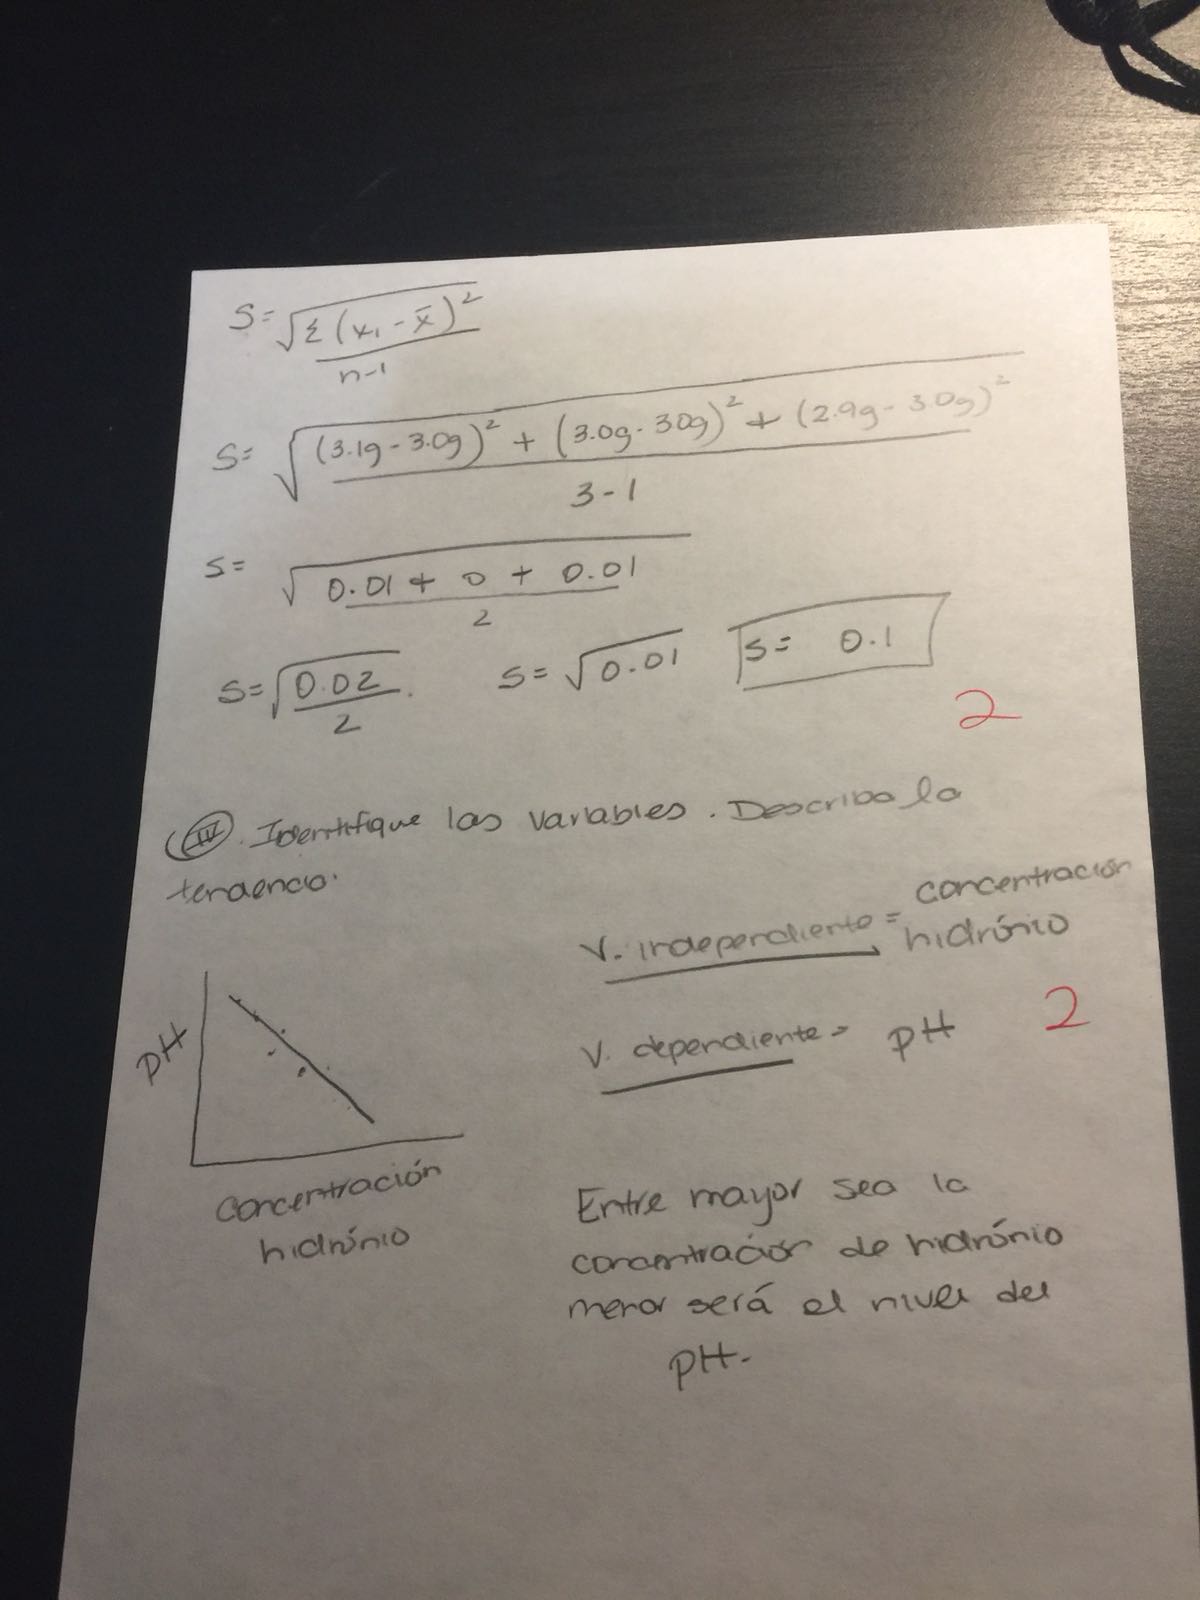 S = √Σ(x₁ - x̄)²
n-1
S = √(3.1g - 3.0g)² + (3.0g - 3.0g)² + (2.9g - 3.0g)²
3 - 1
S = √0.01 + 0 + 0.01
2
S = √0.02 S = √0.01 S = 0.1
2
2
IV. Identifique las variables. Describa la
tendencia.
V. independiente = concentración
hidrónio
V. dependiente = pH
2
pH
Concentración
hidrónio
Entre mayor sea la
concentración de hidrónio
menor será el nivel del
pH.